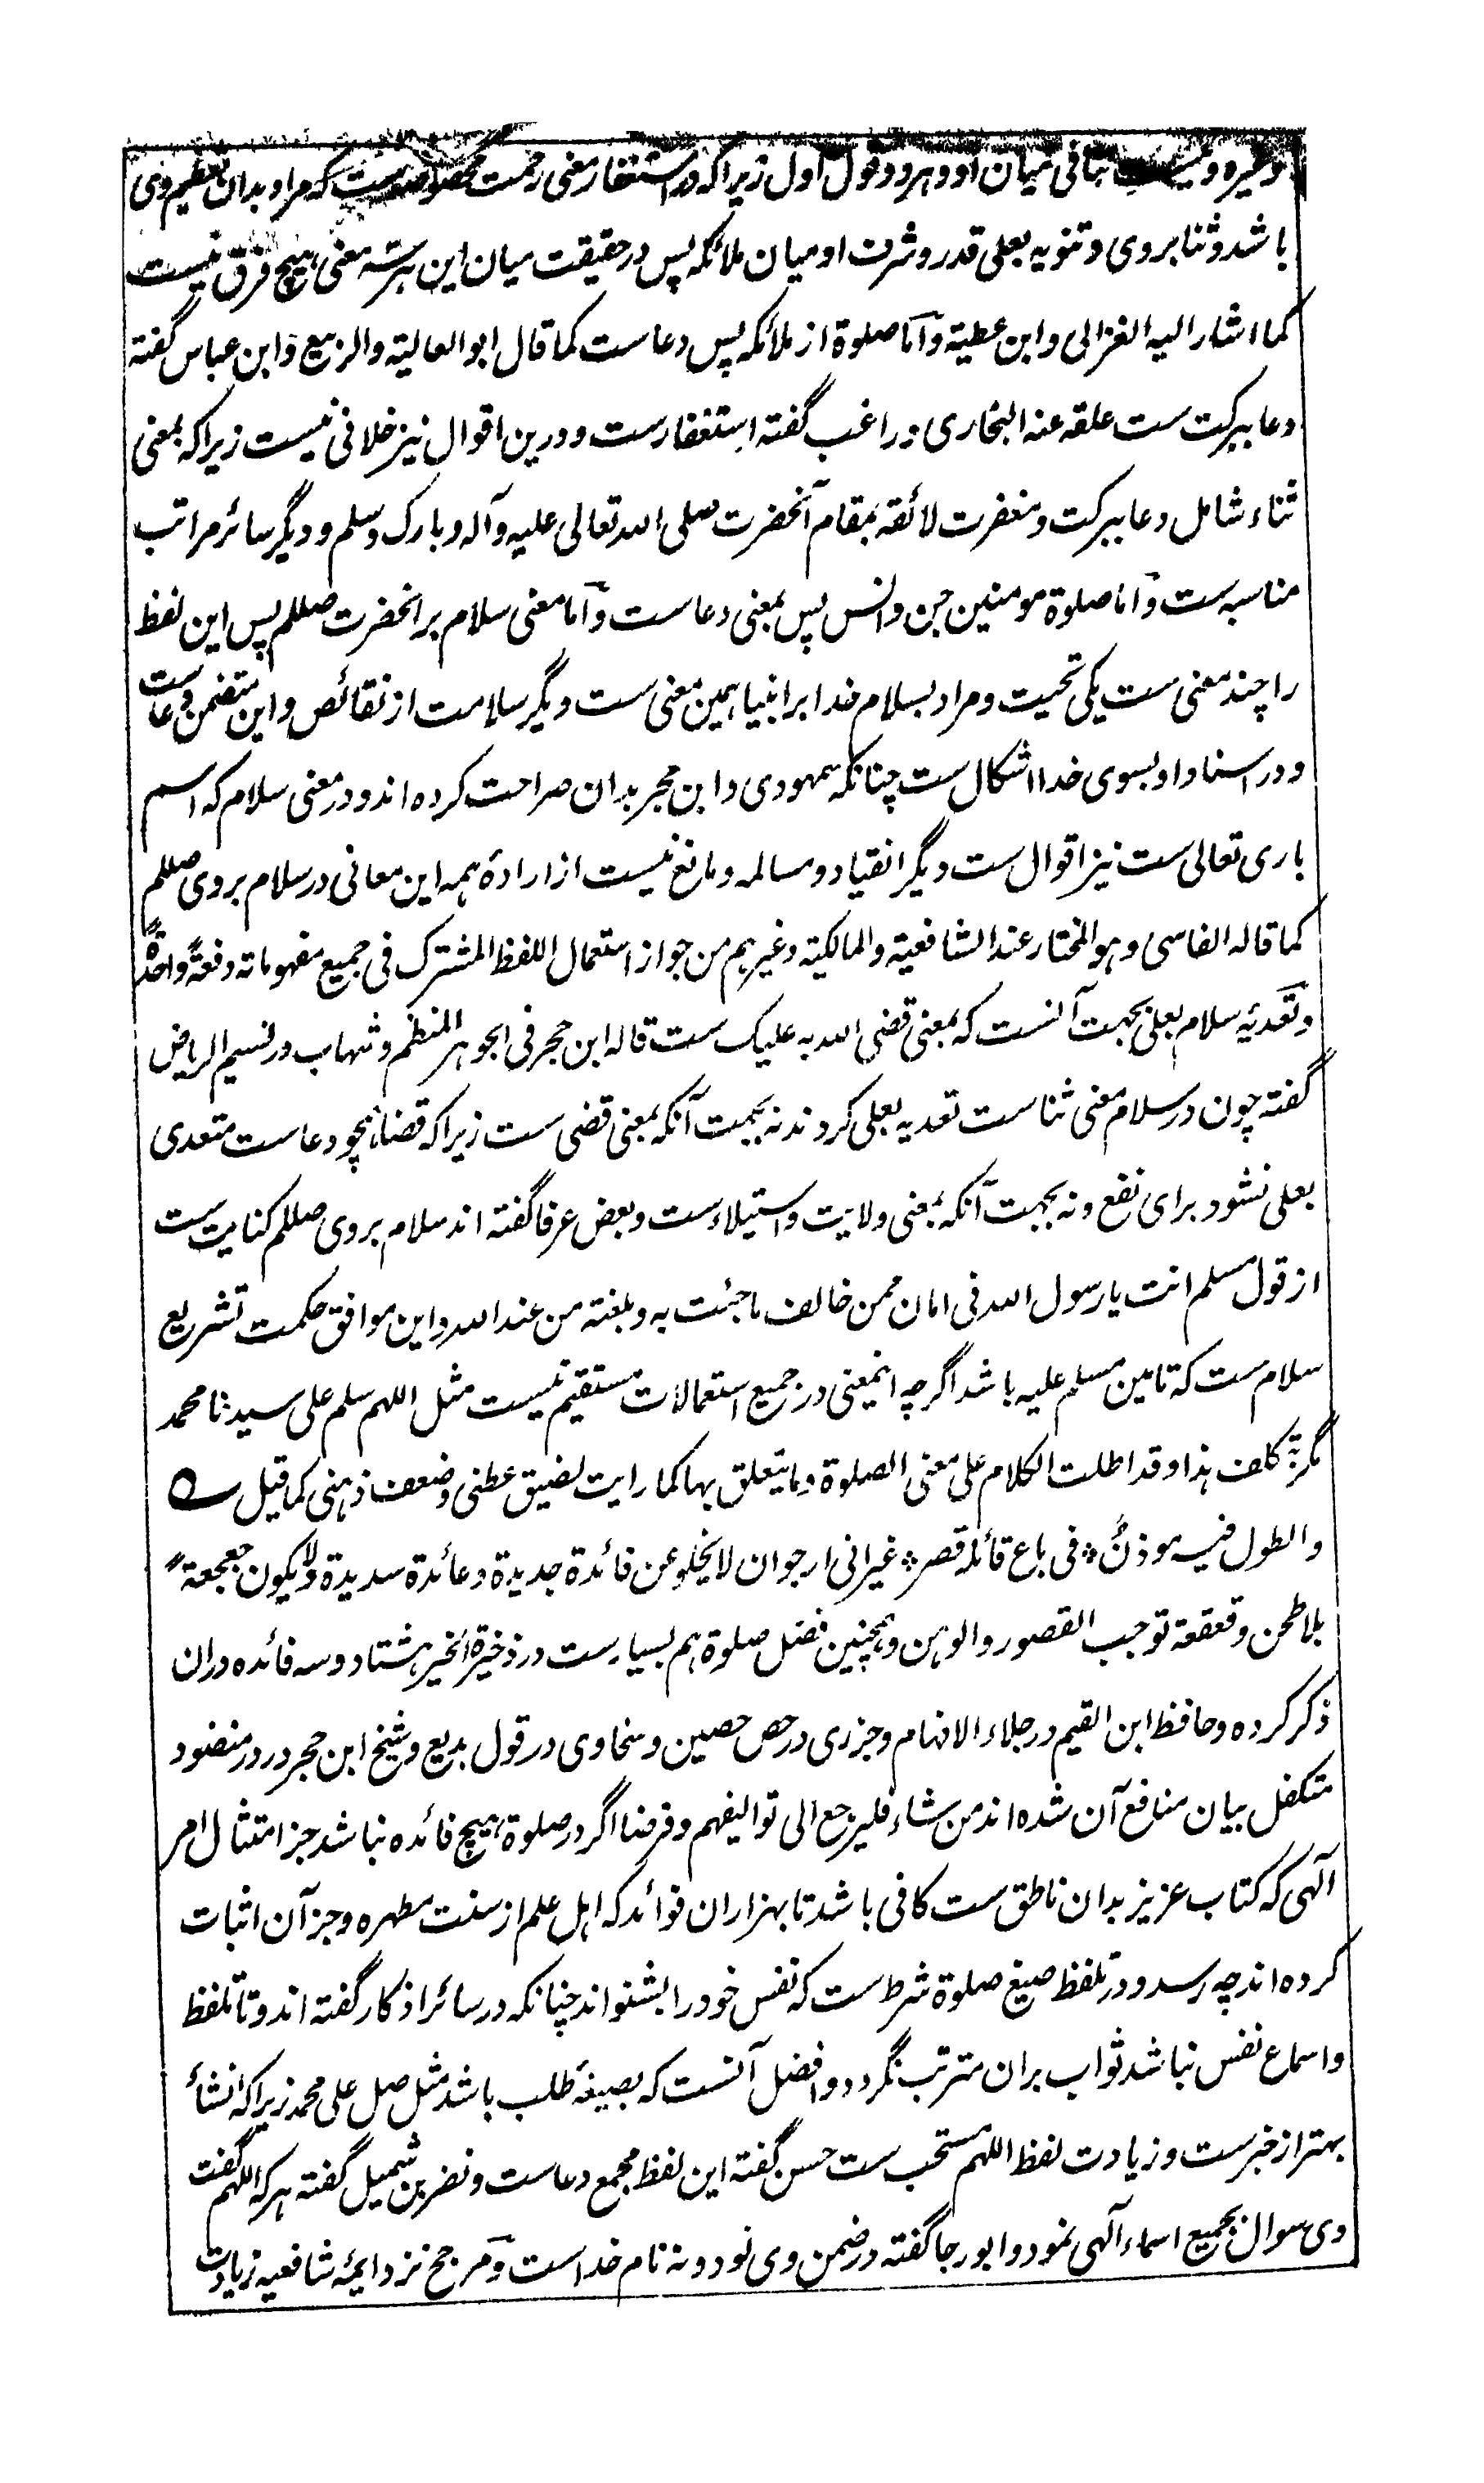 وغیره ونیست تنافی میان او و هر دو قول اول زیراکه در استغفار معنی رحمت مخصوصه است که مراد بدان تعظیم وی
باشد و ثنا بروی و تنویه بعلی قدر و شرف او میان ملائکه پس در حقیقت میان این هر سه معنی هیچ فرق نیست
کما اشار الیه الغزالی وابن عطیة واما صلوة از ملائکه پس دعاست کما قال ابو العالیة والربیع وابن عباس گفته
دعا ببرکت ست علقه عنه البخاری و راغب گفته استغفارست و درین اقوال نیز خلافی نیست زیراکه بمعنی
ثناء شامل دعا ببرکت و مغفرت لائقه بمقام آنحضرت صلی الله تعالی علیه وآله وبارک وسلم و دیگر سائر مراتب
مناسبه ست واما صلوة مومنین جن وانس پس بمعنی دعاست واما معنی سلام بر انحضرت صللم پس این لفظ
را چند معنی ست یکی تحیت و مراد بسلام خدا بر انبیا همین معنی ست دیگر سلامت از نقائص واین متضمن دعاست
و در اسناد او بسوی خدا اشکال ست چنانکه سمهودی وابن حجر بدان صراحت کرده اند و در معنی سلام که اسم
باری تعالی ست نیز اقوال ست دیگر انقیاد و مسالمه و مانع نیست از ارادهٔ همه این معانی در سلام بروی صللم
کما قاله الفاسی وهو المختار عند الشافعیة والمالکیة وغیرهم من جواز استعمال اللفظ المشترک فی جمیع مفهوماته دفعة واحدة
و تعدیهٔ سلام بعلی بجهت آنست که بمعنی قضی الله به علیک ست قاله ابن حجر فی الجوهر المنظم و شهاب در نسیم الریاض
گفته چون در سلام معنی ثناست تعدیه بعلی کردند نه بجهت آنکه بمعنی قضی ست زیراکه قضا همچو دعاست متعدی
بعلی نشود برای نفع و نه بجهت آنکه بمعنی ولایت واستیلاءست و بعض عرفا گفته اند سلام بروی صللم کنایت ست
از قول مسلم انت یا رسول الله فی امان ممن خالف ما جئت به وبلغته من عند الله واین موافق حکمت تشریع
سلام ست که تامین مسلم علیه باشد اگرچه اینمعنی در جمیع استعمالات مستقیم نیست مثل اللهم سلم علی سیدنا محمد
مگر بتکلف هذا وقد اطلت الکلام علی معنی الصلوة وما یتعلق بها کما رایت لضیق عطنی وضعف ذهنی کما قیل ؎
والطول فیه موذنٌ ٭ فی باع قائله قصر ٭ غیر انی ارجو ان لا یخلو عن فائدة جدیدة وعائدة سدیدة ولا یکون جعجعةً
بلا طحن وقعقعة توجب القصور والوهن و همچنین فضل صلوة هم بسیارست در ذخیرة الخیر هشتاد و سه فائده دران
ذکر کرده و حافظ ابن القیم در جلاء الافهام و جزری در حصن حصین و سخاوی در قول بدیع و شیخ ابن حجر در در منضود
متکفل بیان منافع آن شده اند من شاء فلیرجع الی توالیفهم و فرضا اگر در صلوة هیچ فائده نباشد جز امتثال امر
آلهی که کتاب عزیز بدان ناطق ست کافی باشد تا بهزاران فوائد که اهل علم از سنت مطهره و جز آن اثبات
کرده اند چه رسد و در تلفظ صیغ صلوة شرط ست که نفس خود را بشنواند چنانکه در سائر اذکار گفته اند و تا تلفظ
واسماع نفس نباشد ثواب بران مترتب نگردد وافضل آنست که بصیغهٔ طلب باشد مثل صل علی محمد زیراکه انشأ
بهتر از خبرست و زیادت لفظ اللهم مستحب ست حسن گفته این لفظ مجمع دعاست و نضر بن شمیل گفته هرکه اللهم گفت
وی سوال بجمیع اسماء آلهی نمود و ابو رجا گفته در ضمن وی نود و نه نام خداست و مرجح نزد ایمهٔ شافعیه زیادت